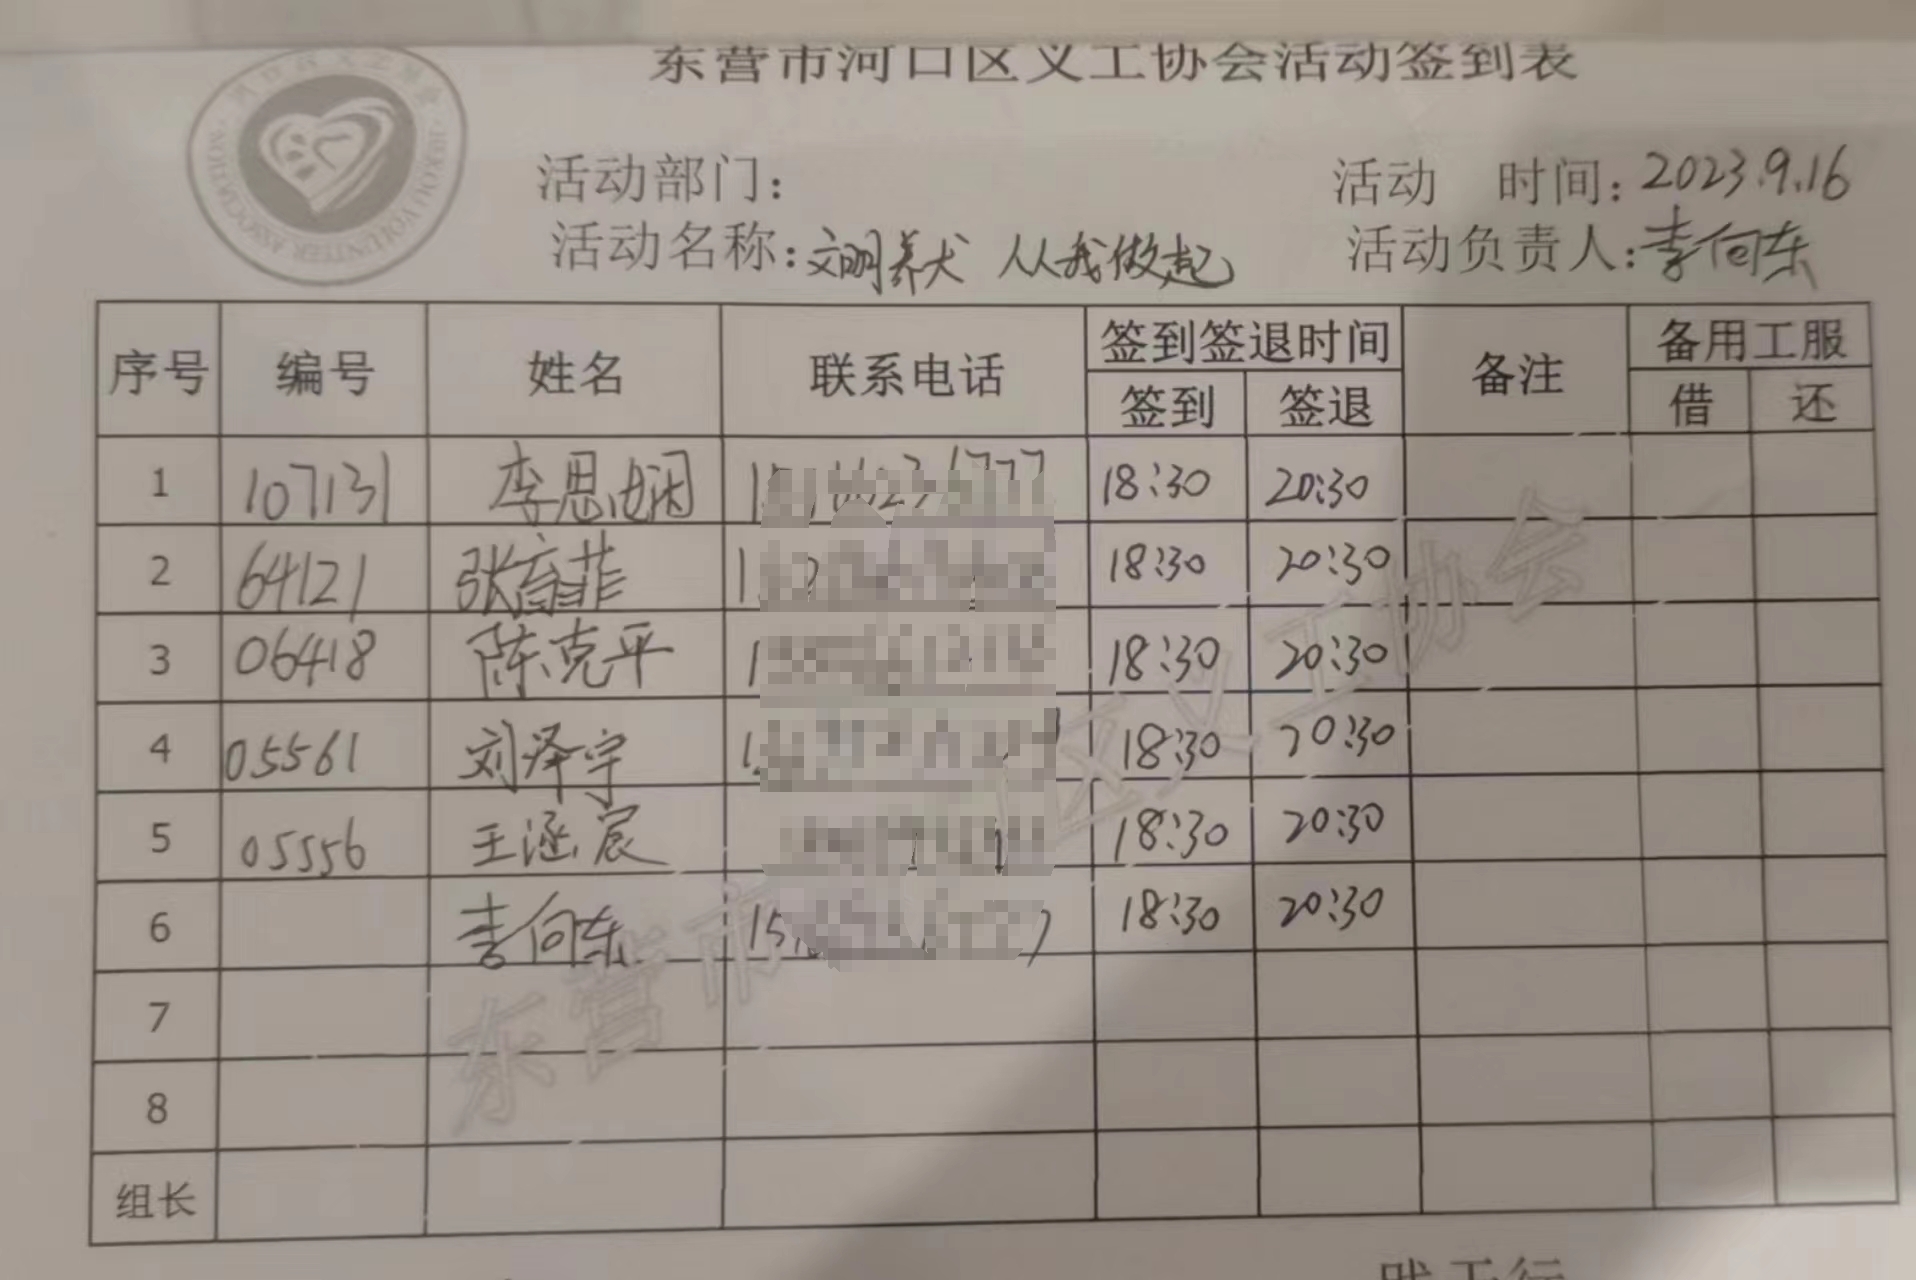 东营市河口区义工协会活动签到表
活动部门：
活动 时间：2023.9.16
活动名称：文明养犬 从我做起
活动负责人：李向东
序号 编号 姓名 联系电话 签到签退时间 备注 备用工服
签到 签退 借 还
1 107131 李思娴 18:30 20:30
2 64121 张育菲 18:30 20:30
3 06418 陈克平 18:30 20:30
4 05561 刘泽宇 18:30 20:30
5 05556 王涵宸 18:30 20:30
6 李向东 18:30 20:30
7
8
组长
东营市 区义工协会